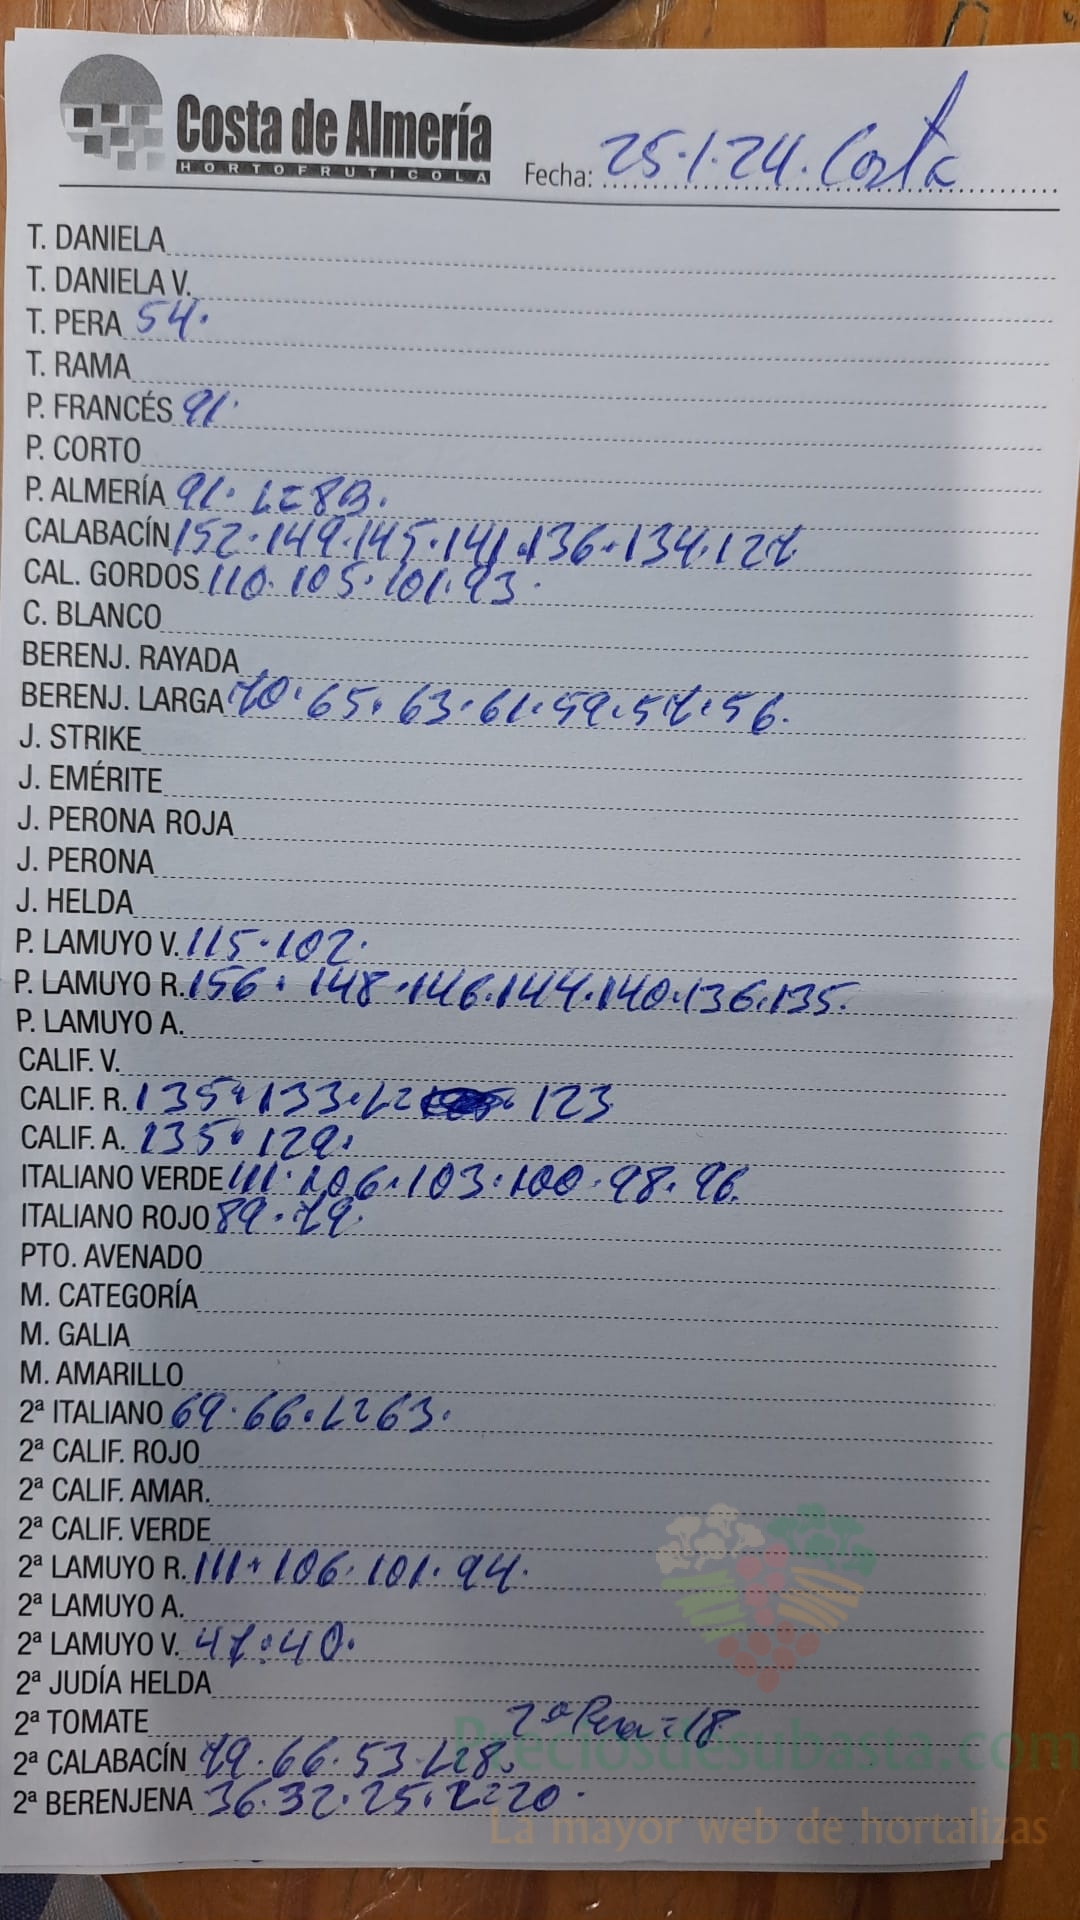 Costa de Almería
HORTOFRUTICOLA
Fecha: 25.1.24. Costa
T. DANIELA
T. DANIELA V.
T. PERA 54.
T. RAMA
P. FRANCÉS 91.
P. CORTO
P. ALMERÍA 91. L=83.
CALABACÍN 152.149.145.141.136.134.127
CAL. GORDOS 110.105.101.93.
C. BLANCO
BERENJ. RAYADA
BERENJ. LARGA 70.65.63.61.59.57.56.
J. STRIKE
J. EMÉRITE
J. PERONA ROJA
J. PERONA
J. HELDA
P. LAMUYO V. 115.102.
P. LAMUYO R. 156.148.146.144.140.136.135.
P. LAMUYO A.
CALIF. V.
CALIF. R. 135.133.L= 123
CALIF. A. 135.129.
ITALIANO VERDE 111.106.103.100.98.96.
ITALIANO ROJO 89.79.
PTO. AVENADO
M. CATEGORÍA
M. GALIA
M. AMARILLO
2ª ITALIANO 69.66.L=63.
2ª CALIF. ROJO
2ª CALIF. AMAR.
2ª CALIF. VERDE
2ª LAMUYO R. 111.106.101.94.
2ª LAMUYO A.
2ª LAMUYO V. 47.40.
2ª JUDÍA HELDA
2ª TOMATE 2ª Pera=18.
2ª CALABACÍN 79.66.53. 28.
2ª BERENJENA 36.32.25.L=20.
Preciosdesubasta.com
La mayor web de hortalizas